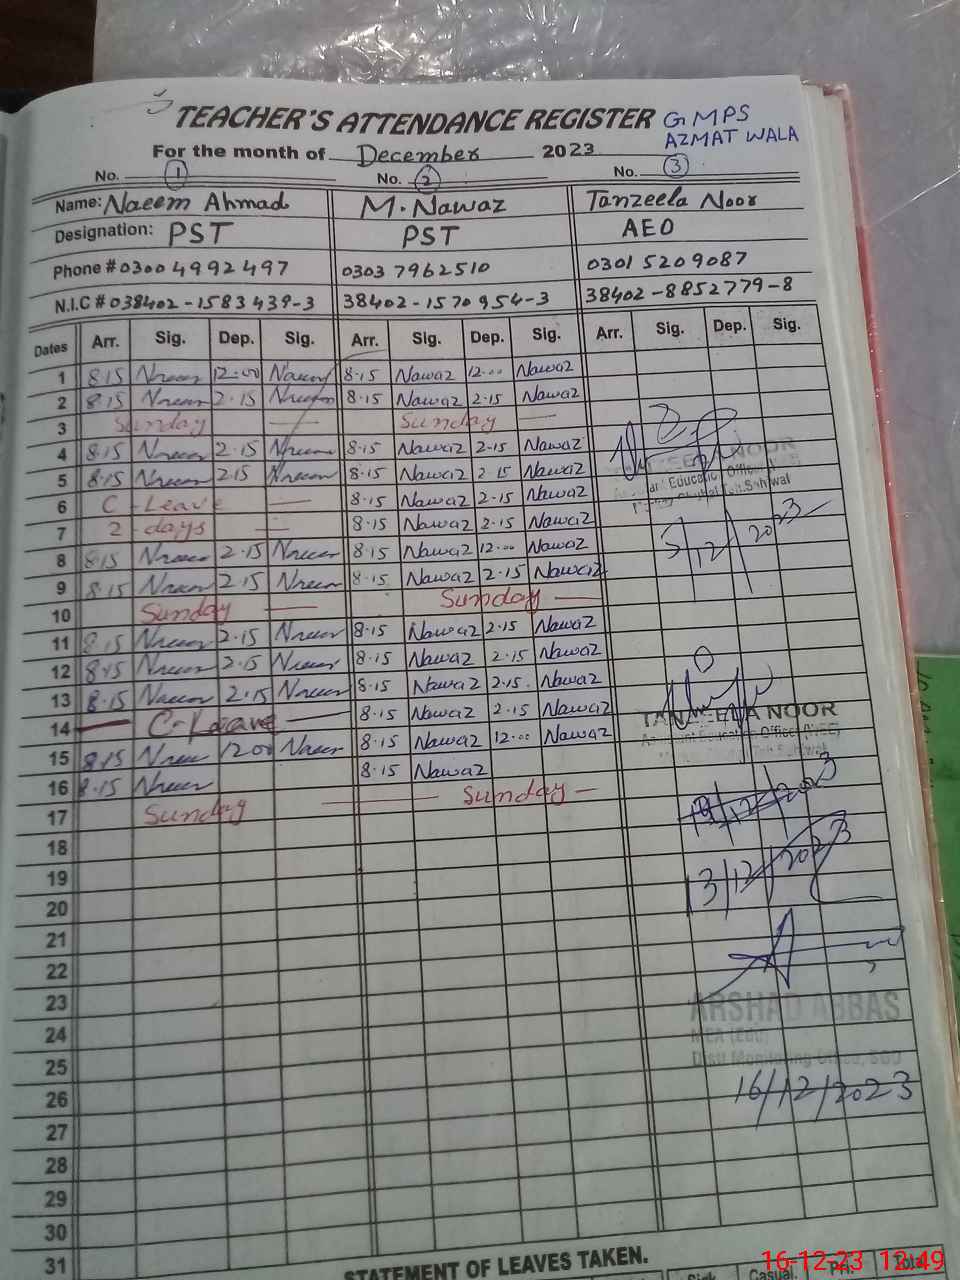 TEACHER'S ATTENDANCE REGISTER GMPS
AZMAT WALA
For the month of December 2023
No. 1 No. 2 No. 3
Name: Naeem Ahmad M. Nawaz Tanzeela Noor
Designation: PST PST AEO
Phone # 0300 4992497 0303 7962510 0301 5209087
N.I.C # 038402-1583439-3 38402-1570954-3 38402-8852779-8
Dates Arr. Sig. Dep. Sig. Arr. Sig. Dep. Sig. Arr. Sig. Dep. Sig.
1 8.15 Naeem 12.00 Naeem 8.15 Nawaz 12.00 Nawaz
2 8.15 Naeem 2.15 Naeem 8.15 Nawaz 2.15 Nawaz
3 Sunday Sunday
4 8.15 Naeem 2.15 Naeem 8.15 Nawaz 2.15 Nawaz
5 8.15 Naeem 2.15 Naeem 8.15 Nawaz 2.15 Nawaz
6 C-Leave 8.15 Nawaz 2.15 Nawaz
7 2-days 8.15 Nawaz 2.15 Nawaz
8 8.15 Naeem 2.15 Naeem 8.15 Nawaz 12.00 Nawaz
9 8.15 Naeem 2.15 Naeem 8.15 Nawaz 2.15 Nawaz
10 Sunday Sunday
11 8.15 Naeem 2.15 Naeem 8.15 Nawaz 2.15 Nawaz
12 8.15 Naeem 2.15 Naeem 8.15 Nawaz 2.15 Nawaz
13 8.15 Naeem 2.15 Naeem 8.15 Nawaz 2.15 Nawaz
14 C-Leave 8.15 Nawaz 2.15 Nawaz
15 8.15 Naeem 12.00 Naeem 8.15 Nawaz 12.00 Nawaz
16 8.15 Naeem 8.15 Nawaz
17 Sunday Sunday
18
19
20
21
22
23
24
25
26
27
28
29
30
31
NOOR
Education Officer
5/12/2023
TANZEELA NOOR
Education Officer
12/2023
13/12/2023
ARSHAD ABBAS
MEA
Distt Monitoring Office, SGD
16/12/2023
STATEMENT OF LEAVES TAKEN.
Sick Casual Pri. Total
16-12-23 12:49